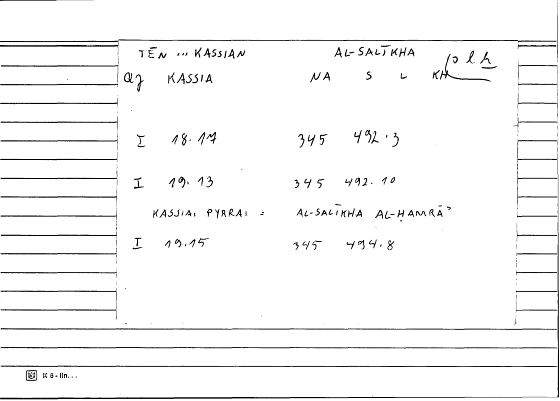 TĒN ... KASSIAN AL-SALĪKHA
KASSIA NA S L KH
I 18.17 345 492.3
I 19.13 345 492.10
KASSIAI PYRRAI = AL-SALĪKHA AL-ḤAMRĀ'
I 19.15 345 494.8
K 8 - lin...